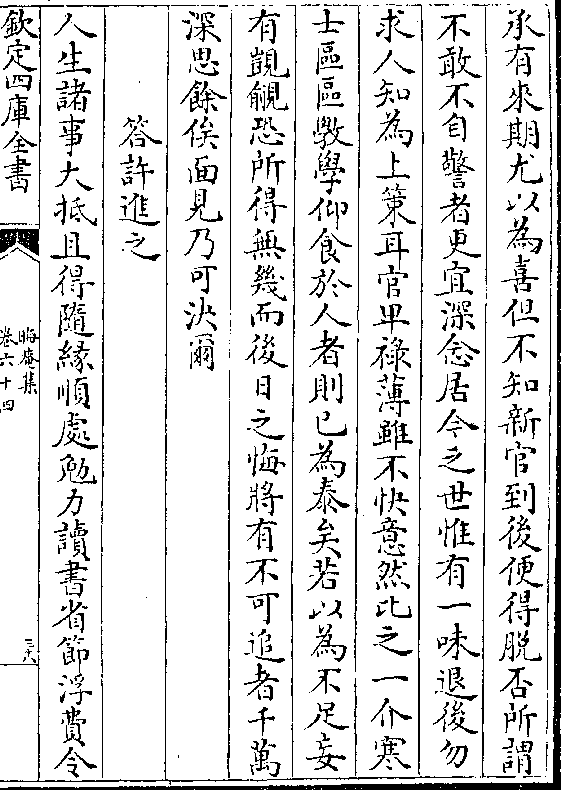 承有來期尤以為喜但不知新官到後便得脫否所謂
不敢不自警者更宜深念居今之世惟有一味退後勿
求人知為上策耳官卑祿薄雖不快意然比之一介寒
士區區斆學仰食於人者則已為泰矣若以為不足妄
有覬覦恐所得無幾而後日之悔將有不可追者千萬
深思餘俟面見乃可決爾
答許進之
人生諸事大抵且得隨緣順處勉力讀書省節浮費令
欽定四庫全書
晦庵集
卷六十四
三六